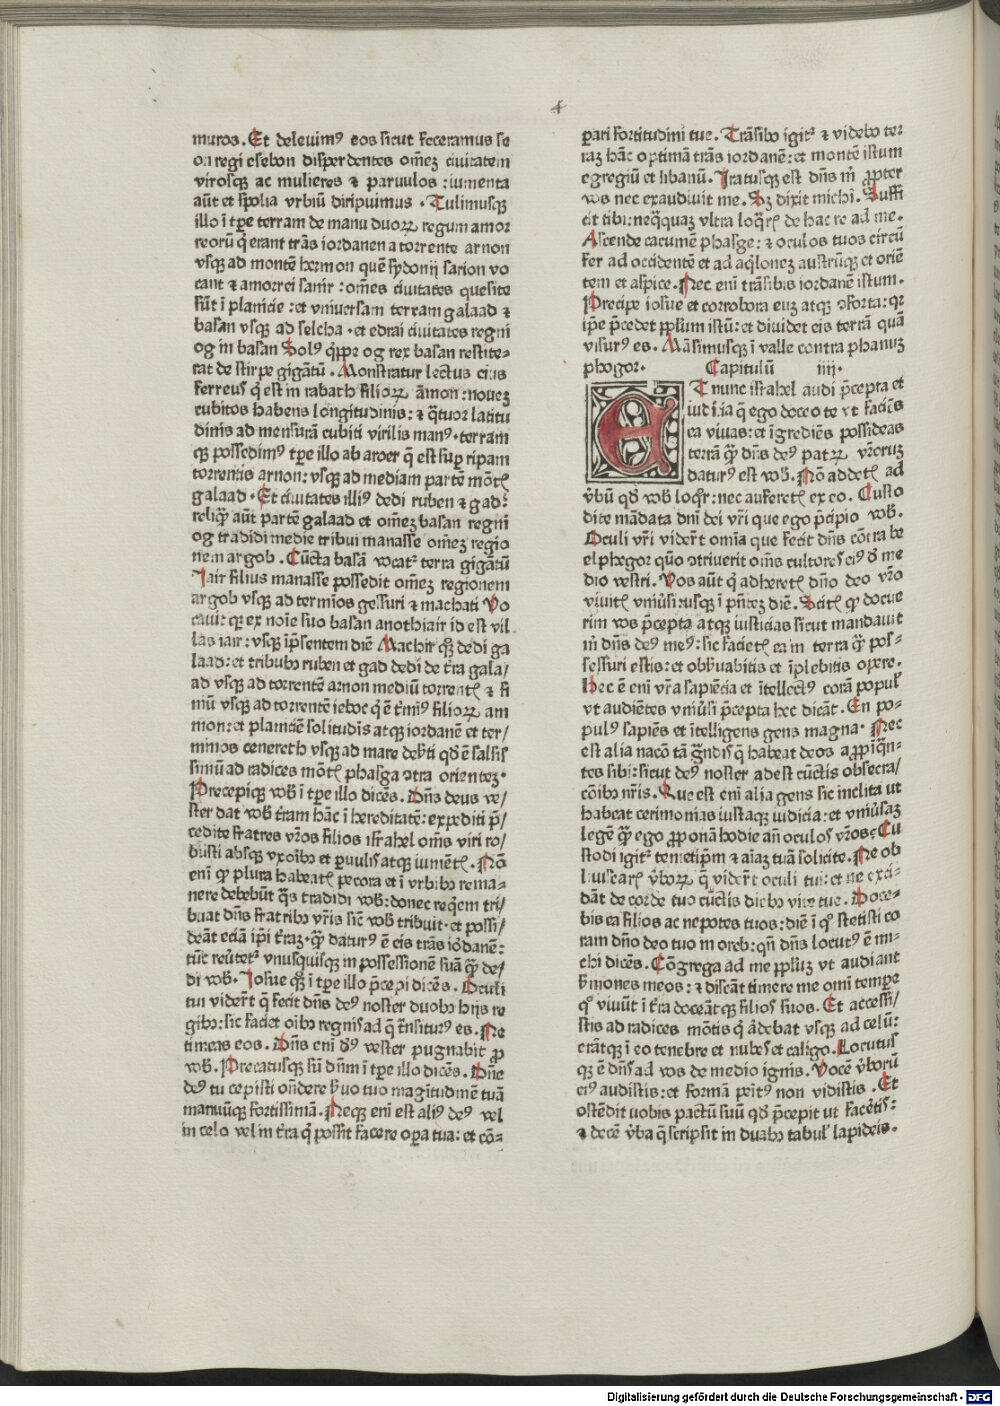 4
muros. Et delevimꝰ eos sicut feceramus se
on regi esebon disperdentes om̄eꝫ civitatem
virosqꝫ ac mulieres ⁊ parvulos : iumenta
aūt et spolia urbiū diripuimus . Tulimusqꝫ
illo ī tꝑe terram de manu duoꝝ regum amor
reorū q̄ erant trās iordanen a torrente arnon
vsqꝫ ad montē hermon quē sydonij sarion vo
cant ⁊ amorrei sanir : om̄es civitates quesite
sūt ī planicie : et vniversam terram galaad ⁊
basan vsqꝫ ad selcha . et edrai civitates regni
og in basan Solꝰ q̄ꝑpe og rex basan restite-
rat de stirpe gigātū . Monstratur lectus eius
ferreus q̄ est in rabath filioꝝ āmon : noveꝫ
cubitos habens longitudinis : ⁊ q̄tuor latitu
dinis ad mensurā cubiti virilis manꝰ . terram
qꝫ possedimꝰ tꝑe illo ab aroer q̄ est suꝑ ripam
torrentis arnon : vsqꝫ ad mediam partē mōtꝭ
galaad . Et civitates illiꝰ dedi ruben ⁊ gad :
reliq̄ aūt partē galaad et om̄eꝫ basan regni
og tradidi medie tribui manasse om̄eꝫ regio
nem argob . Cūcta basā vocatᷣ terra gigātū
Iair filius manasse possedit om̄eꝫ regionem
argob vsqꝫ ad termīos gessuri ⁊ machati Vo
cavitqꝫ ex noīe suo basan anothiair id est vil
las iair : vsqꝫ ī p̄sentem diē Machir qꝫ dedi ga
laad : et tribubꝰ ruben et gad dedi de t̄ra gala/
ad vsqꝫ ad torrentē arnon mediū torrentꝭ ⁊ fi
niū vsqꝫ ad torrentē ieboc q̄ ē t̄minꝰ filioꝝ am
mon : et planiciē solitudis atqꝫ iordanē et ter/
minos cenereth vsqꝫ ad mare deẜti qd̄ ē salsis
simū ad radices mōtꝭ phasga ꝯtra orienteꝫ .
Precepiqꝫ vob̄ ī tꝑe illo dicēs . Dn̄s deus ve/
ster dat vob̄ t̄ram hāc ī hereditatē : expediti p̄/
cedite fratres vr̄os filios israhel om̄s viri ro/
busti absqꝫ vxoībꝰ et ꝑvulis atqꝫ iumētꝭ . Nō
enī qꝫ plura habeatꝭ pecora et ī vrbibꝰ rema-
nere debebūt q̄s tradidi vob̄ : donec req̄em tri/
buat dn̄s fratribꝰ vr̄is sic̄ vob̄ tribuit . et possi/
deāt eciā ip̄i t̄raꝫ . quā daturꝰ ē eis trās iordanē :
tūc rev̄tetᷣ vnusquisqꝫ in possessionē suā quā de/
di vob̄ . Iosue qꝫ ī tꝑe illo p̄cepi dicēs . Oculi
tui vider̄t q̄ fecit dn̄s deꝰ noster duobꝰ hijs re
gibꝰ : sic faciet oībꝰ regnis ad q̄ t̄nsiturꝰ es . Ne
timeas eos . Dn̄s enī dꝰ vester pugnabit ꝓ
vob̄ . Precatusqꝫ sū dn̄m ī tꝑe illo dicēs . Dn̄e
deꝰ tu cepisti on̄dere ẜvo tuo magitudinē tuā
manūqꝫ fortissimā . Neqꝫ enī est aliꝰ deꝰ vel
in celo vel in t̄ra q̄ possit facere oꝑa tua : et cō-
ꝑari fortitudini tue . Trāsibo igitᷣ ⁊ videbo ter
raꝫ hāc optimā trās iordanē : et montē istum
egregiū et libanū . Iratusqꝫ est dn̄s m̄ ꝓpter
vos nec exaudivit me . Sꝫ dixit michi . Suffi
cit tibi : neq̄quaꝫ vltra loq̄rꝭ de hac re ad me .
Ascende cacumē phasge : ⁊ oculos tuos circū
fer ad occidentē et ad aq̄loneꝫ austrūqꝫ et oriē
tem et aspice . Nec enī trāsibis iordanē istum .
Precipe iosue et corrobora euꝫ atqꝫ ꝯforta : qꝛ
ip̄e p̄cedet pp̄lum istū : et dividet eis terrā quā
visurꝰ es . Māsimusqꝫ ī valle contra phanuꝫ
phogor . Capitulū iiij .
ET nunc israhel audi p̄cepta et
iudicia q̄ ego doceo te vt faciēs
ea vivas : et īgrediēs possideas
terrā quā dn̄s deꝰ patꝝ vr̄oruꝫ
daturꝰ est vob̄ . Nō addetꝭ ad
v̄bū qd̄ vob̄ loq̄r : nec auferetꝭ ex eo . Custo
dite mādata dn̄i dei vr̄i que ego p̄cipio vob̄ .
Oculi vr̄i vider̄t omīa que fecit dn̄s cōtra be
elphegor quō ꝯtriverit om̄s cultores eiꝰ d̄ me
dio vestri . Vos aūt q̄ adheretꝭ dn̄o deo vr̄o
vivitꝭ vniv̄si : usqꝫ ī p̄ntēꝫ diē . Scitꝭ qꝫ docue
rim vos p̄cepta atqꝫ iusticias sicut mandavit
m̄ dn̄s deꝰ meꝰ : sic facietꝭ ea in terra quā pos-
sessuri estis : et obẜvabitis et īplebitis opere .
Hec ē enī vr̄a sapiēcia et ītellectꝰ corā populꝭ
vt audiētes vniv̄si p̄cepta hec dicāt . En po-
pulꝰ sapiēs et ītelligens gens magna . Nec
est alia nacō tā grādis q̄ habeat deos aꝓpīq̄n-
tes sibi : sicut deꝰ noster adest cūctis obsecra/
cōibꝰ nr̄is . Que est enī alia gens sic inclita ut
habeat cerimonias iustaqꝫ iudicia : et vniv̄saꝫ
legē quā ego ꝓponā hodie an̄ oculos vr̄os ? Cu
stodi igitᷣ temetip̄m ⁊ aīaꝫ tuā solicite . Ne ob
liuiscarꝭ v̄boꝝ q̄ vider̄t oculi tui : et ne exci-
dāt de corde tuo cūctis diebꝰ vite tue . Doce-
bis ea filios ac nepotes tuos : diē ī qͦ stetisti co
ram dn̄o deo tuo in oreb : qn̄ dn̄s locutꝰ ē mi-
chi dicēs . Cōgrega ad me pp̄luꝫ vt audiant
ẜmones meos : ⁊ discāt timere me omī tempe
qͦ vivūt ī t̄ra doceātqꝫ filios suos . Et accessi/
stis ad radices mōtis q̄ ādebat vsqꝫ ad celū :
erātqꝫ ī eo tenebre et nubes et caligo . Locutus
qꝫ ē dn̄s ad vos de medio ignis . Vocē v̄borū
eiꝰ audistis : et formā peītꝰ non vidistis . Et
ostēdit uobis pactū suū qd̄ p̄cepit ut facetis :
⁊ decē v̄ba q̄ scripsit in duabꝰ tabulꝭ lapideis .
Digitalisierung gefördert durch die Deutsche Forschungsgemeinschaft - DFG